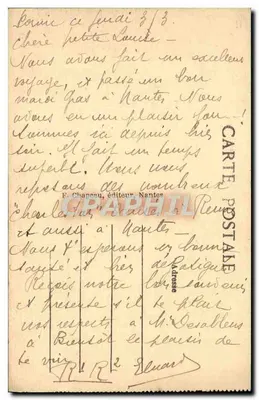 ce jeudi 3/3
chère petite
Nous avons fait un excellent
voyage, et passé un bon
mardi gras à Nantes. Nous
avons eu un plaisir fou!
sommes ici depuis hier
soir. Il fait un temps
superbe! Nous nous
reposons des nombreux
Chapeau, éditeur, Nantes
et aussi à Nantes -
Nous t'espérons en bonne
santé et
Reçois notre bon souvenir
et présente s'il te plait
nos respects à Mr
à Bientôt le plaisir de
te voir
R R
CARTE POSTALE
Adresse
CPAPHIL